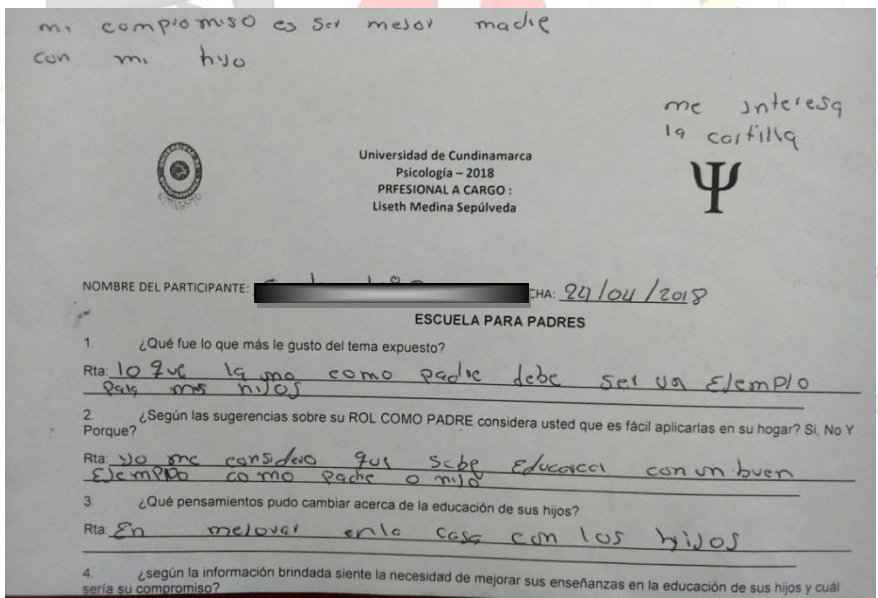 mi compromiso es ser mejor madre
con mi hijo
me interesa
la cartilla
Universidad de Cundinamarca
Psicología – 2018
PRFESIONAL A CARGO :
Liseth Medina Sepúlveda
NOMBRE DEL PARTICIPANTE:
CHA: 24/04/2018
ESCUELA PARA PADRES
1. ¿Qué fue lo que más le gusto del tema expuesto?
Rta: lo que la mo como padre debe ser un Ejemplo
para mis hijos
2. ¿Según las sugerencias sobre su ROL COMO PADRE considera usted que es fácil aplicarlas en su hogar? Si, No Y
Porque?
Rta: yo me considero que con un buen
como padre o
3. ¿Qué pensamientos pudo cambiar acerca de la educación de sus hijos?
Rta: En mejorar en la casa con los hijos
4. ¿según la información brindada siente la necesidad de mejorar sus enseñanzas en la educación de sus hijos y cuál
sería su compromiso?